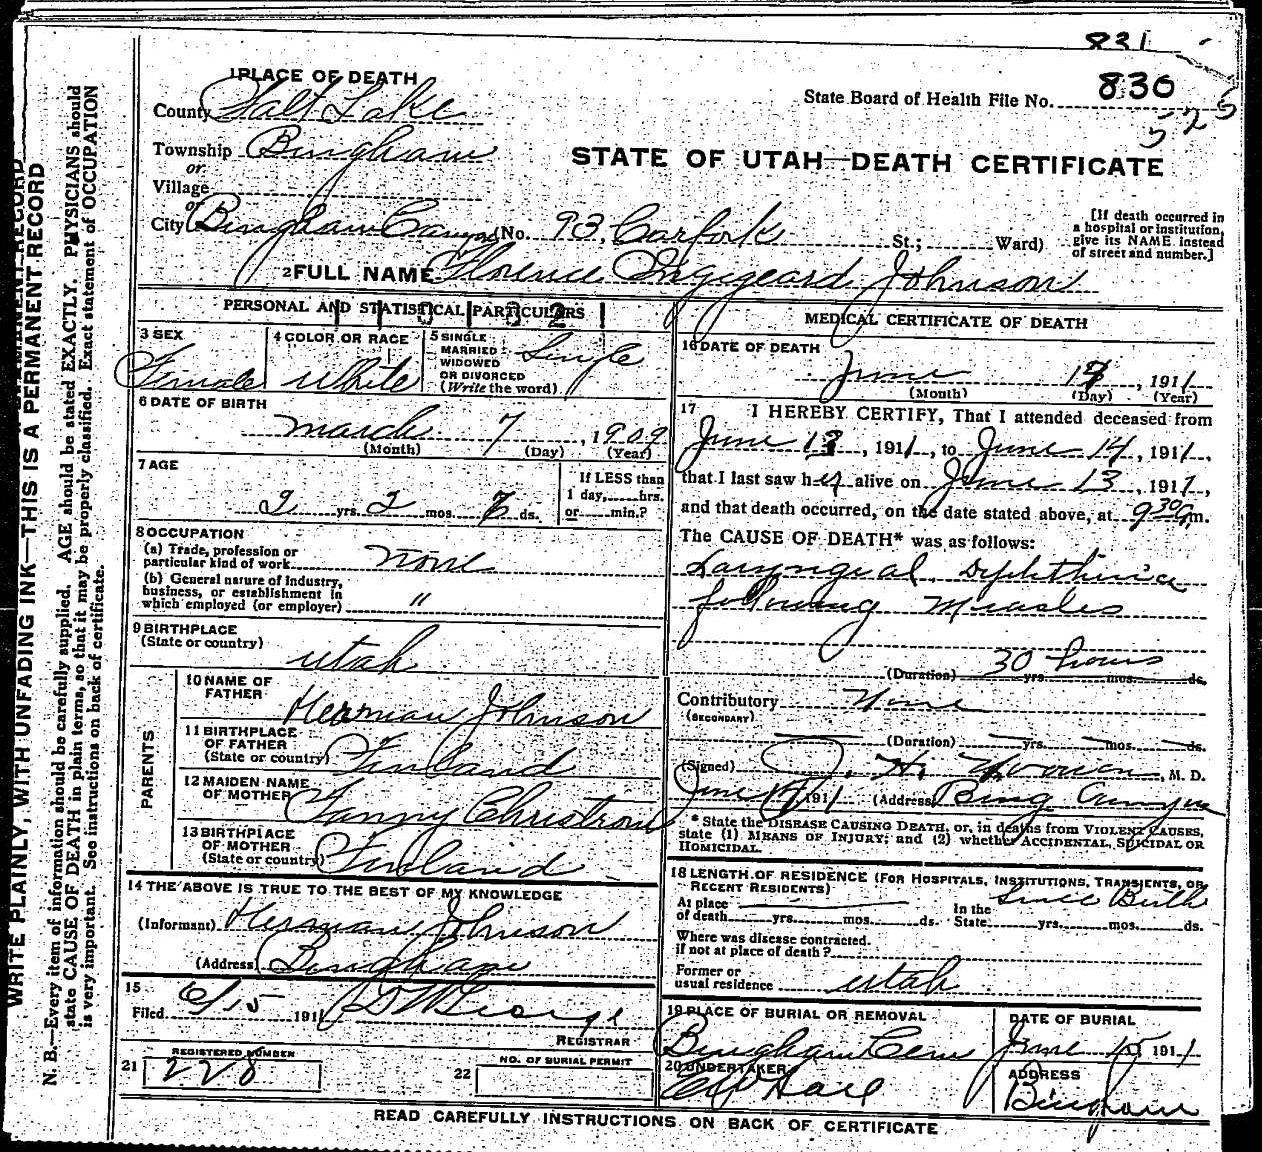 831
830
State Board of Health File No.
525
1 PLACE OF DEATH
County Salt Lake
Township Bingham
or
Village
or
City Bingham Canyon (No. 93, Carfork St.; Ward)
STATE OF UTAH—DEATH CERTIFICATE
[If death occurred in
a hospital or institution,
give its NAME instead
of street and number.]
2 FULL NAME Florence Johnson
PERSONAL AND STATISTICAL PARTICULARS
3 SEX
Female
4 COLOR OR RACE
White
5 SINGLE
MARRIED
WIDOWED
OR DIVORCED
(Write the word)
Single
6 DATE OF BIRTH
March 7, 1909
(Month) (Day) (Year)
7 AGE
2 yrs. 2 mos. ds.
If LESS than
1 day, hrs.
or min.?
8 OCCUPATION
(a) Trade, profession or
particular kind of work none
(b) General nature of industry,
business, or establishment in
which employed (or employer) "
9 BIRTHPLACE
(State or country)
utah
PARENTS
10 NAME OF
FATHER
Herman Johnson
11 BIRTHPLACE
OF FATHER
(State or country) Finland
12 MAIDEN NAME
OF MOTHER Fanny Christrom
13 BIRTHPLACE
OF MOTHER
(State or country) Finland
14 THE ABOVE IS TRUE TO THE BEST OF MY KNOWLEDGE
(Informant) Herman Johnson
(Address) Bingham
15
Filed 6/15 1911 George
REGISTRAR
21 REGISTERED NUMBER
228
22 NO. OF BURIAL PERMIT
MEDICAL CERTIFICATE OF DEATH
16 DATE OF DEATH
June , 1911
(Month) (Day) (Year)
17 I HEREBY CERTIFY, That I attended deceased from
June 13, 1911, to June 14, 1911,
that I last saw her alive on June 13, 1911,
and that death occurred, on the date stated above, at 9 30 a m.
The CAUSE OF DEATH* was as follows:
Laryngeal Diphtheria
following Measles
(Duration) 30 hours yrs. mos. ds.
Contributory None
(SECONDARY)
(Duration) yrs. mos. ds.
(Signed) J. H. M. D.
June 1911 (Address) Bing Canyon
* State the DISEASE CAUSING DEATH, or, in deaths from VIOLENT CAUSES,
state (1) MEANS OF INJURY; and (2) whether ACCIDENTAL, SUICIDAL OR
HOMICIDAL.
18 LENGTH OF RESIDENCE (FOR HOSPITALS, INSTITUTIONS, TRANSIENTS, OR
RECENT RESIDENTS)
At place
of death yrs. mos. ds.
In the
State Since Birth yrs. mos. ds.
Where was disease contracted,
if not at place of death?
Former or
usual residence utah
19 PLACE OF BURIAL OR REMOVAL
Bingham Cem
DATE OF BURIAL
June 15 1911
20 UNDERTAKER
ADDRESS
Bingham
READ CAREFULLY INSTRUCTIONS ON BACK OF CERTIFICATE
WRITE PLAINLY, WITH UNFADING INK—THIS IS A PERMANENT RECORD
N. B.—Every item of information should be carefully supplied. AGE should be stated EXACTLY. PHYSICIANS should
state CAUSE OF DEATH in plain terms, so that it may be properly classified. Exact statement of OCCUPATION
is very important. See instructions on back of certificate.